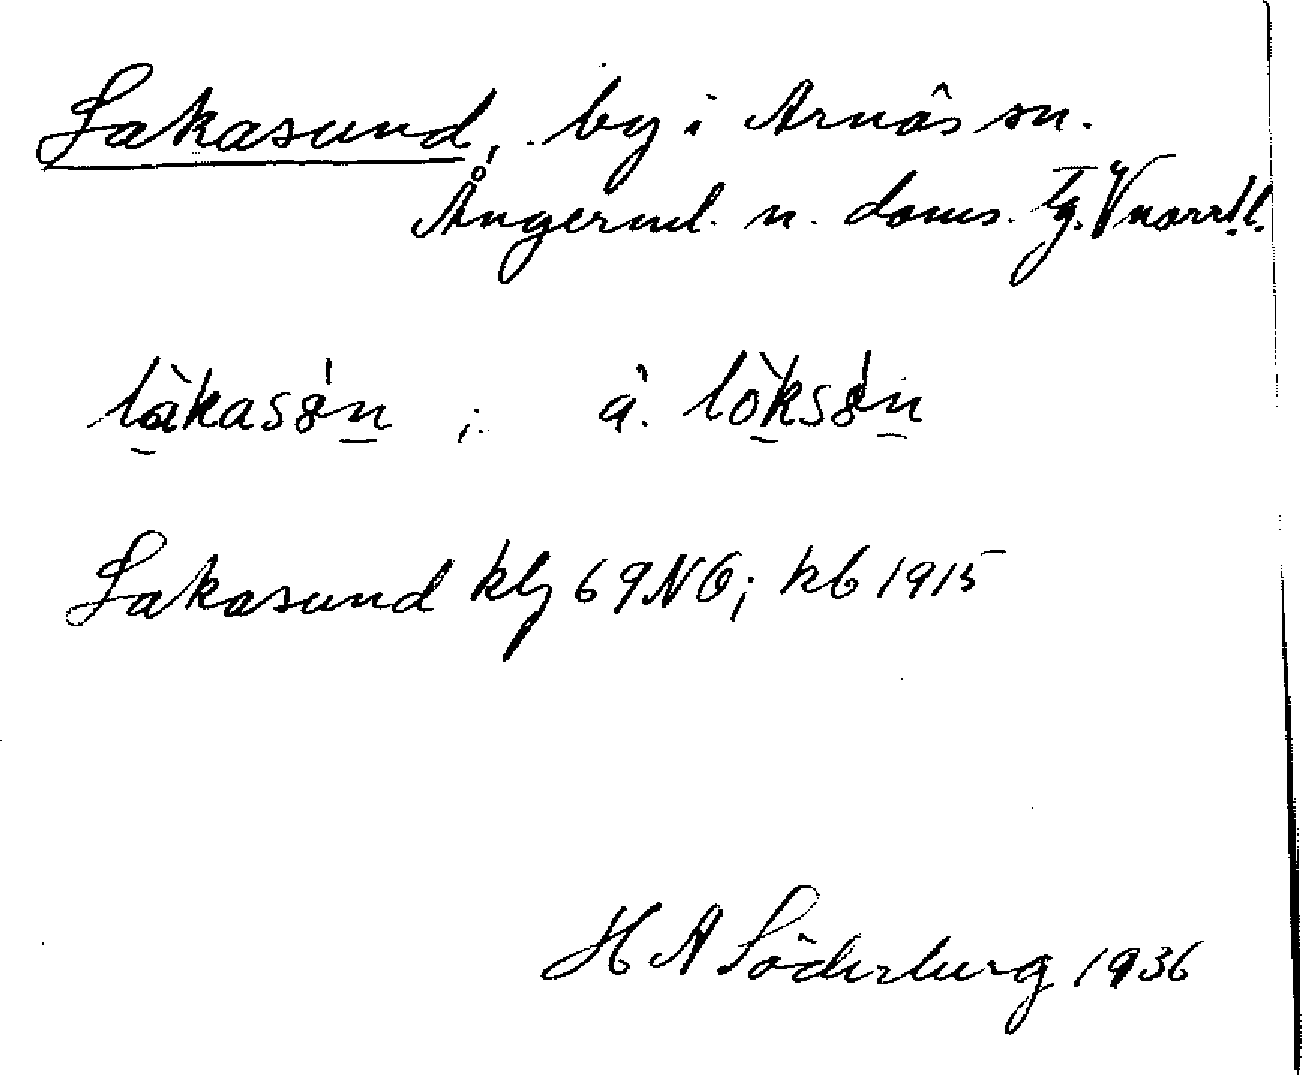 Lakasund, by i Arnäs sn.
Ångerml. n. doms. tg. V norrl.
làkasón ; ä. lòksón
Lakasund kbl 69NO; kb 1915
H A Söderberg 1936